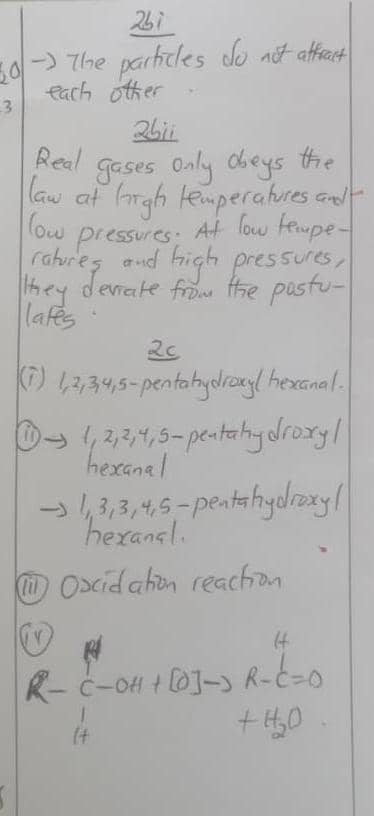 2bi
-> The particles do not attract
each other
2bii
Real gases only obeys the
law at high temperatures and
low pressures. At low tempe-
ratures and high pressures,
they deviate from the postu-
lates.
2c
(i) 1,2,3,4,5-pentahydroxyl hexanal.
(ii) -> 1,2,2,4,5-pentahydroxyl
hexanal
-> 1,3,3,4,5-pentahydroxyl
hexanal.
(iii) Oxidation reaction
(iv)
H H
R-C-OH + [O] -> R-C=O
H + H₂O.